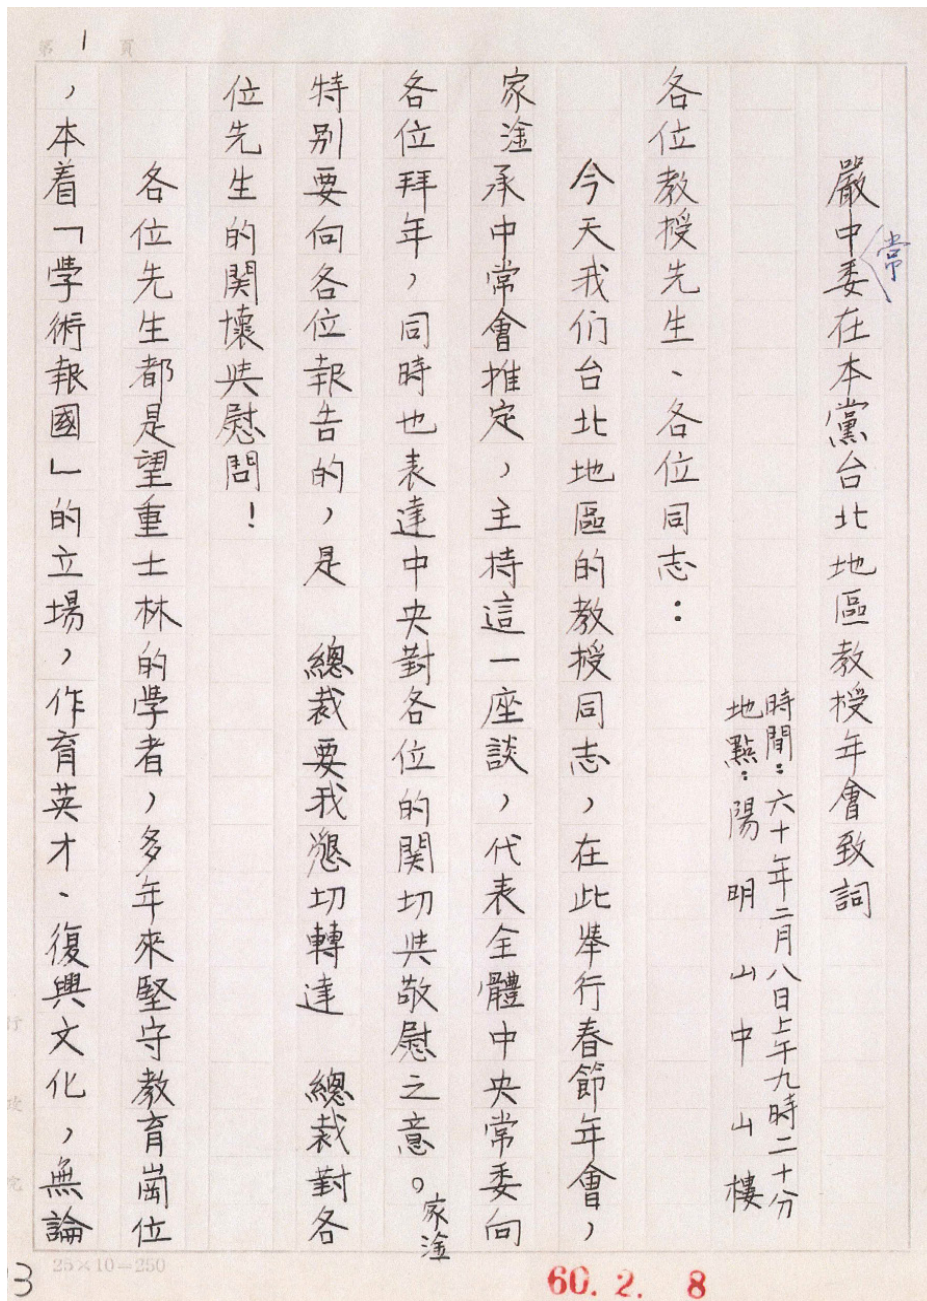 第 1 頁
嚴中常委在本黨台北地區教授年會致詞
時間：六十年二月八日上午九時二十分
地點：陽明山中山樓
各位教授先生、各位同志：
今天我们台北地區的教授同志，在此舉行春節年會，
家淦承中常會推定，主持這一座談，代表全體中央常委向
各位拜年，同時也表達中央對各位的関切與敬慰之意。家淦
特别要向各位報告的，是 總裁要我懇切轉達 總裁對各
位先生的関懷與慰問！
各位先生都是望重士林的學者，多年來堅守教育崗位
，本着「學術報國」的立場，作育英才、復興文化，無論
行政院
25×10=250
60. 2. 8